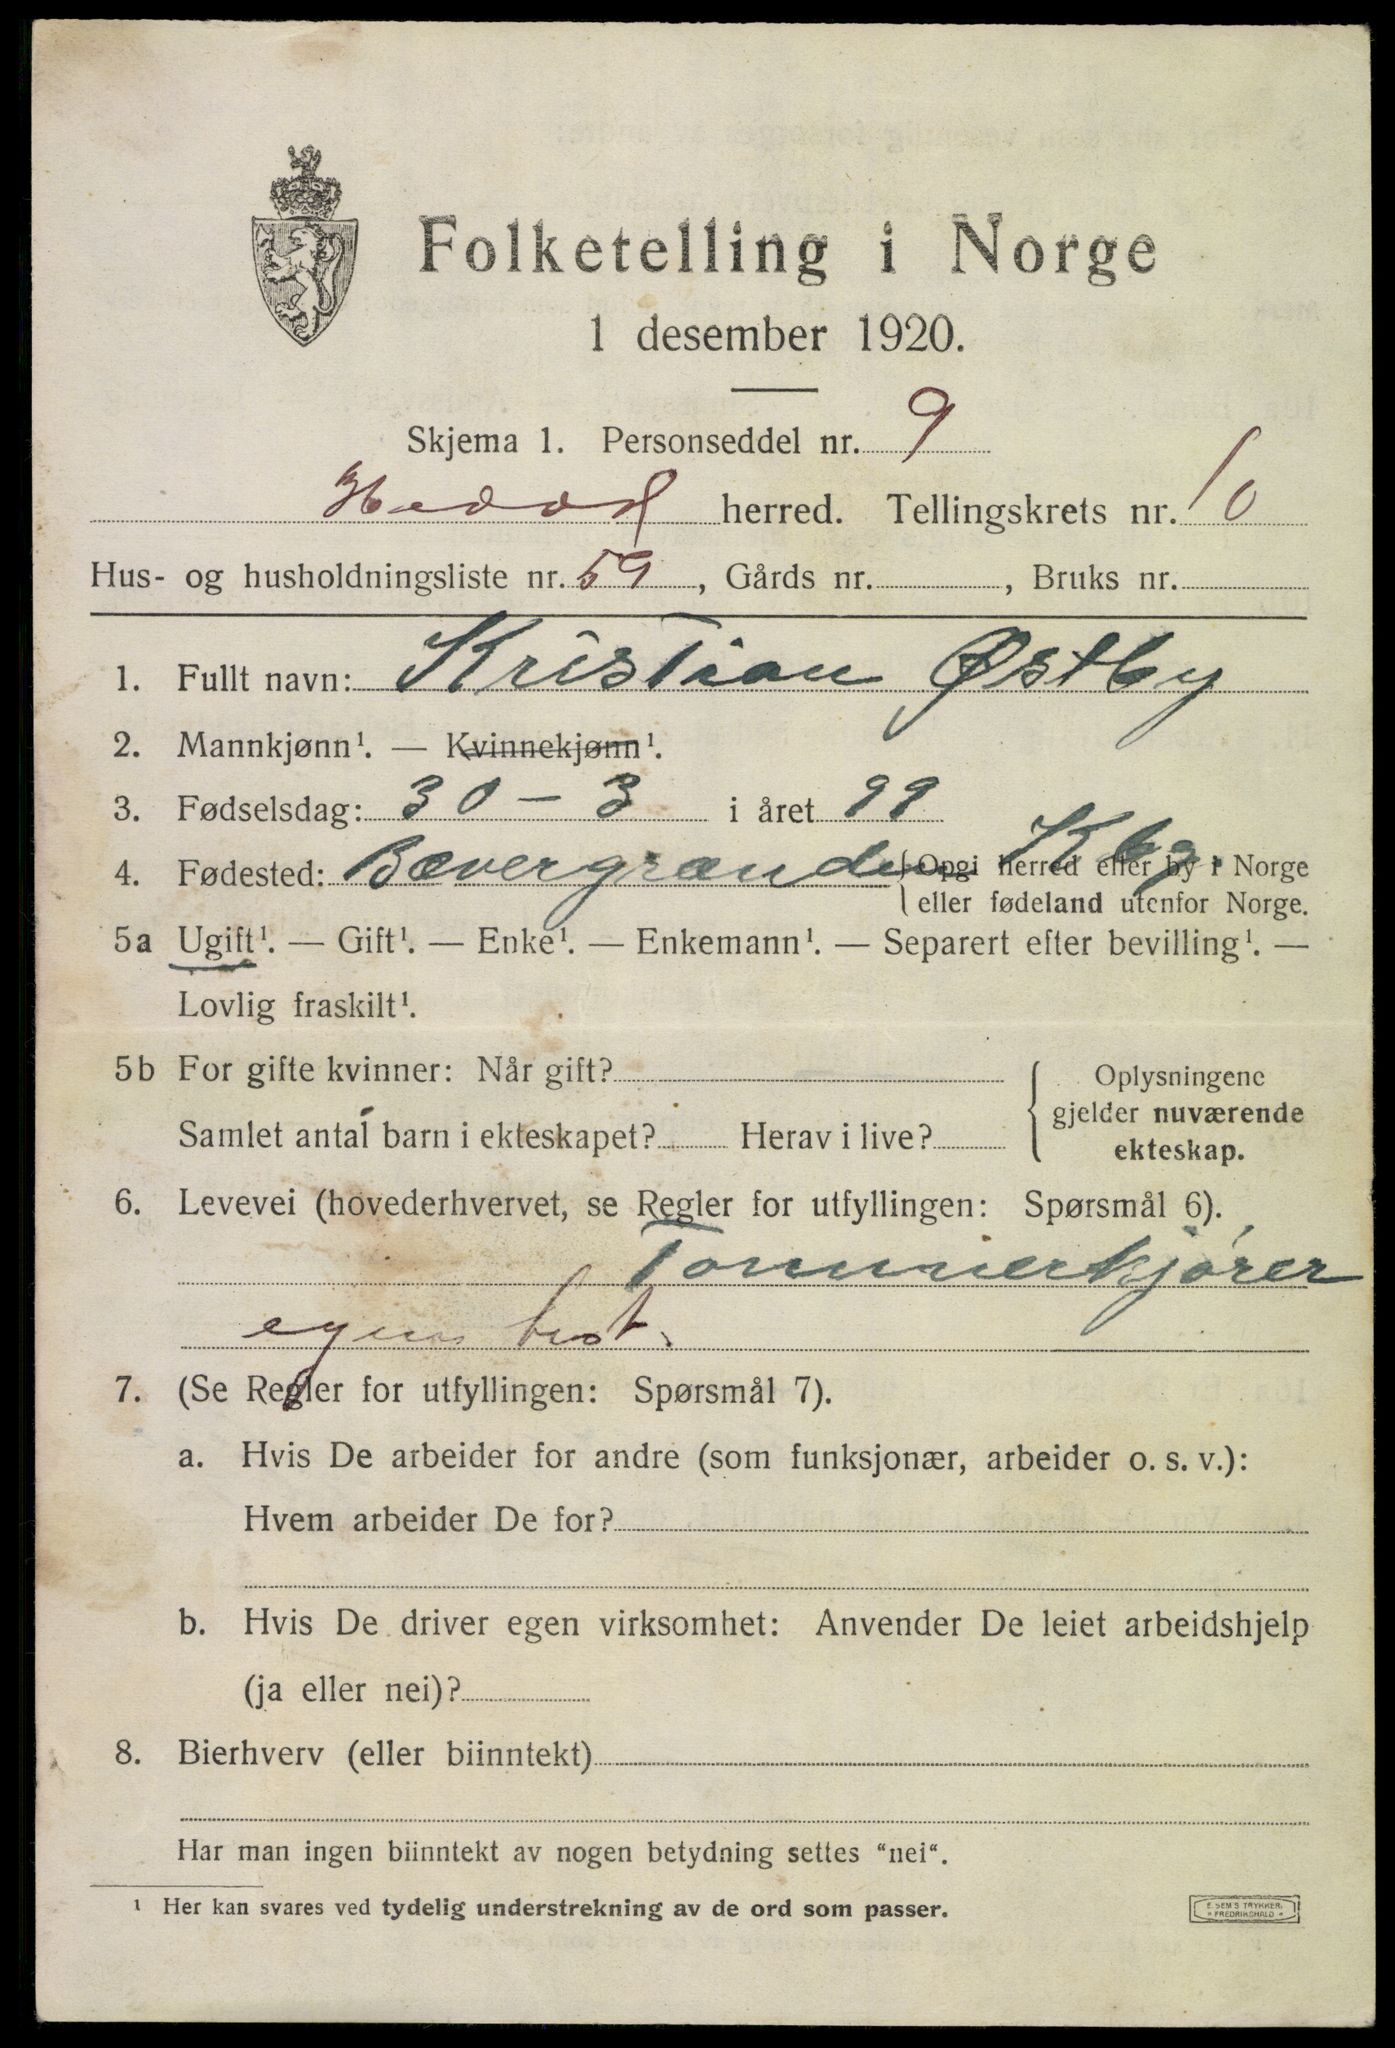 Folketelling i Norge
1 desember 1920.
Skjema 1. Personseddel nr. 9
Heddal herred. Tellingskrets nr. 10
Hus- og husholdningsliste nr. 59, Gårds nr. , Bruks nr.
1. Fullt navn: Kristian Østby
2. Mannkjønn¹. — Kvinnekjønn¹.
3. Fødselsdag: 30 - 3 i året 99
4. Fødested: Bævergrænden Kbg. Opgi herred eller by i Norge
eller fødeland utenfor Norge.
5a Ugift¹. — Gift¹. — Enke¹. — Enkemann¹. — Separert efter bevilling¹. —
Lovlig fraskilt¹.
5b For gifte kvinner: Når gift? Oplysningene
gjelder nuværende
Samlet antal barn i ekteskapet? Herav i live?
ekteskap.
6. Levevei (hovederhvervet, se Regler for utfyllingen: Spørsmål 6).
Tømmerkjører
egen hest.
7. (Se Regler for utfyllingen: Spørsmål 7).
a. Hvis De arbeider for andre (som funksjonær, arbeider o. s. v.):
Hvem arbeider De for?
b. Hvis De driver egen virksomhet: Anvender De leiet arbeidshjelp
(ja eller nei)?
8. Bierhverv (eller biinntekt)
Har man ingen biinntekt av nogen betydning settes "nei".
¹ Her kan svares ved tydelig understrekning av de ord som passer.
E. SEM'S TRYKKERI
FREDRIKSHALD